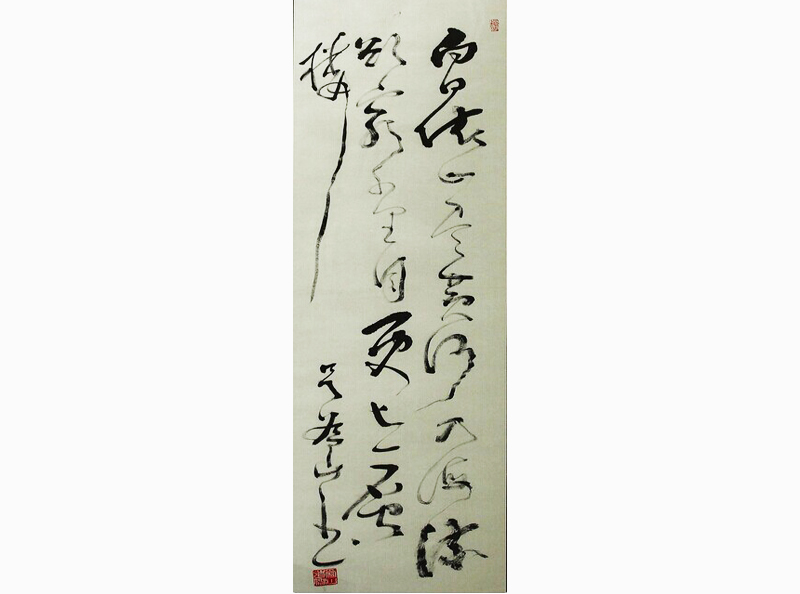 白日依山尽黄河入海流
欲窮千里目更上一層
樓